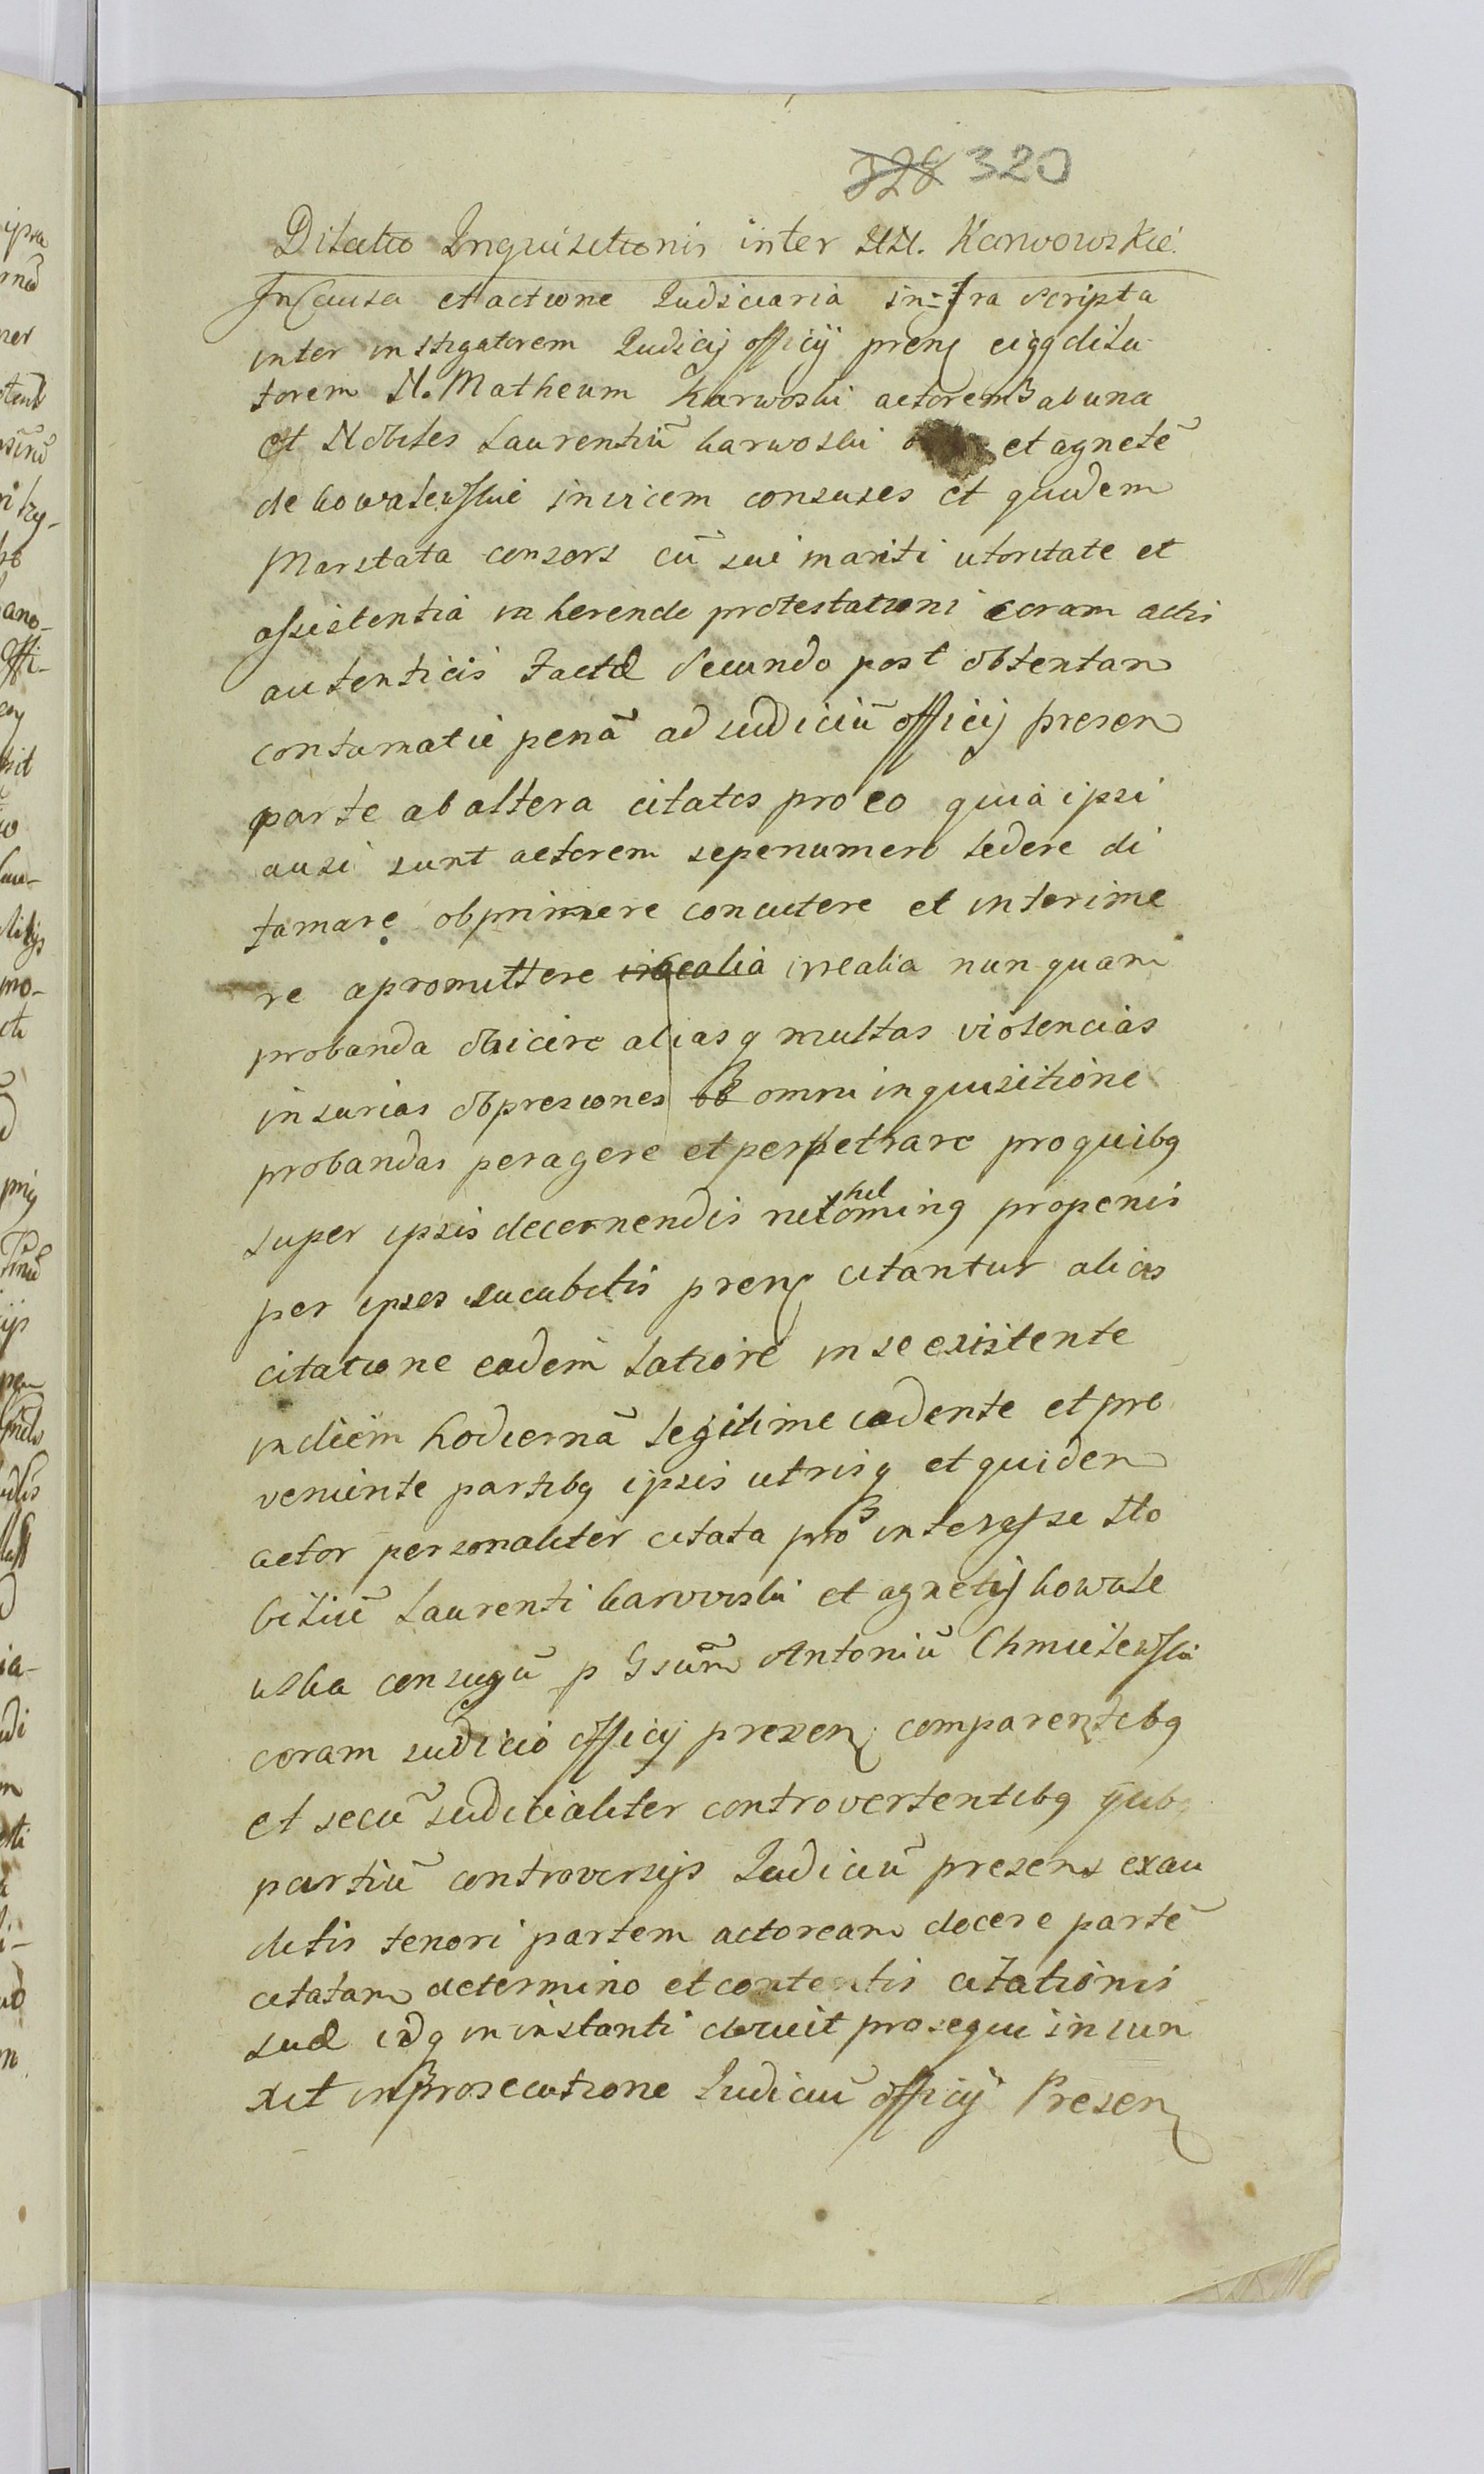 328 320
Dilatio Inquisitionis inter NN. Karwowskie.
In Causa et actione Judiciaria in=fra scripta
inter instigatorem Judicij officij prens eiqq dila
torem N. Matheum Karwoski actorem ab una
et Nobiles Laurentiū karwoski et agnetē
de kowalewskie invicem consuges et quidem
Maritata consors cū sui mariti utoritate et
assistentia in herendo protestationi coram actis
autenticis factæ secundo post obtentam
contumatie penā ad iudiciū officij presen
parte ab altera citatos pro eo quia ipsi
ausi sunt actorem sepenumero ledere di
famare obprimere concutere et interime
re apromittere irrealia irrealia nunquam
probanda obiicire aliasq multas violencias
iniurias obpresiones omni inquisitione
probandas peragere et perpetrare pro quibq
super ipsis decernendis nihilominq pro penis
per ipsos sucubitis prens citantur alias
citatione eadem latiore in se existente
in diem hodiernā legitime cadente et pro
veniente partibq ipsis utrisq et quidem
actor personaliter citata pro interesse No
biliū Laurenti karwoski et agnetis kowale
wska coniugū p Gsum Antoniū Chmielewski
coram iudicio officij presen comparentibq
et secū iudicialiter controvertentibq quibq
partiū controversijs Judiciū presens exau
ditis tenori partem actoream docere partē
citatam determino et contentis citationis
suæ idq in instanti docuit prosequi iniun
xit in Prosecutione Judiciū officij Presen